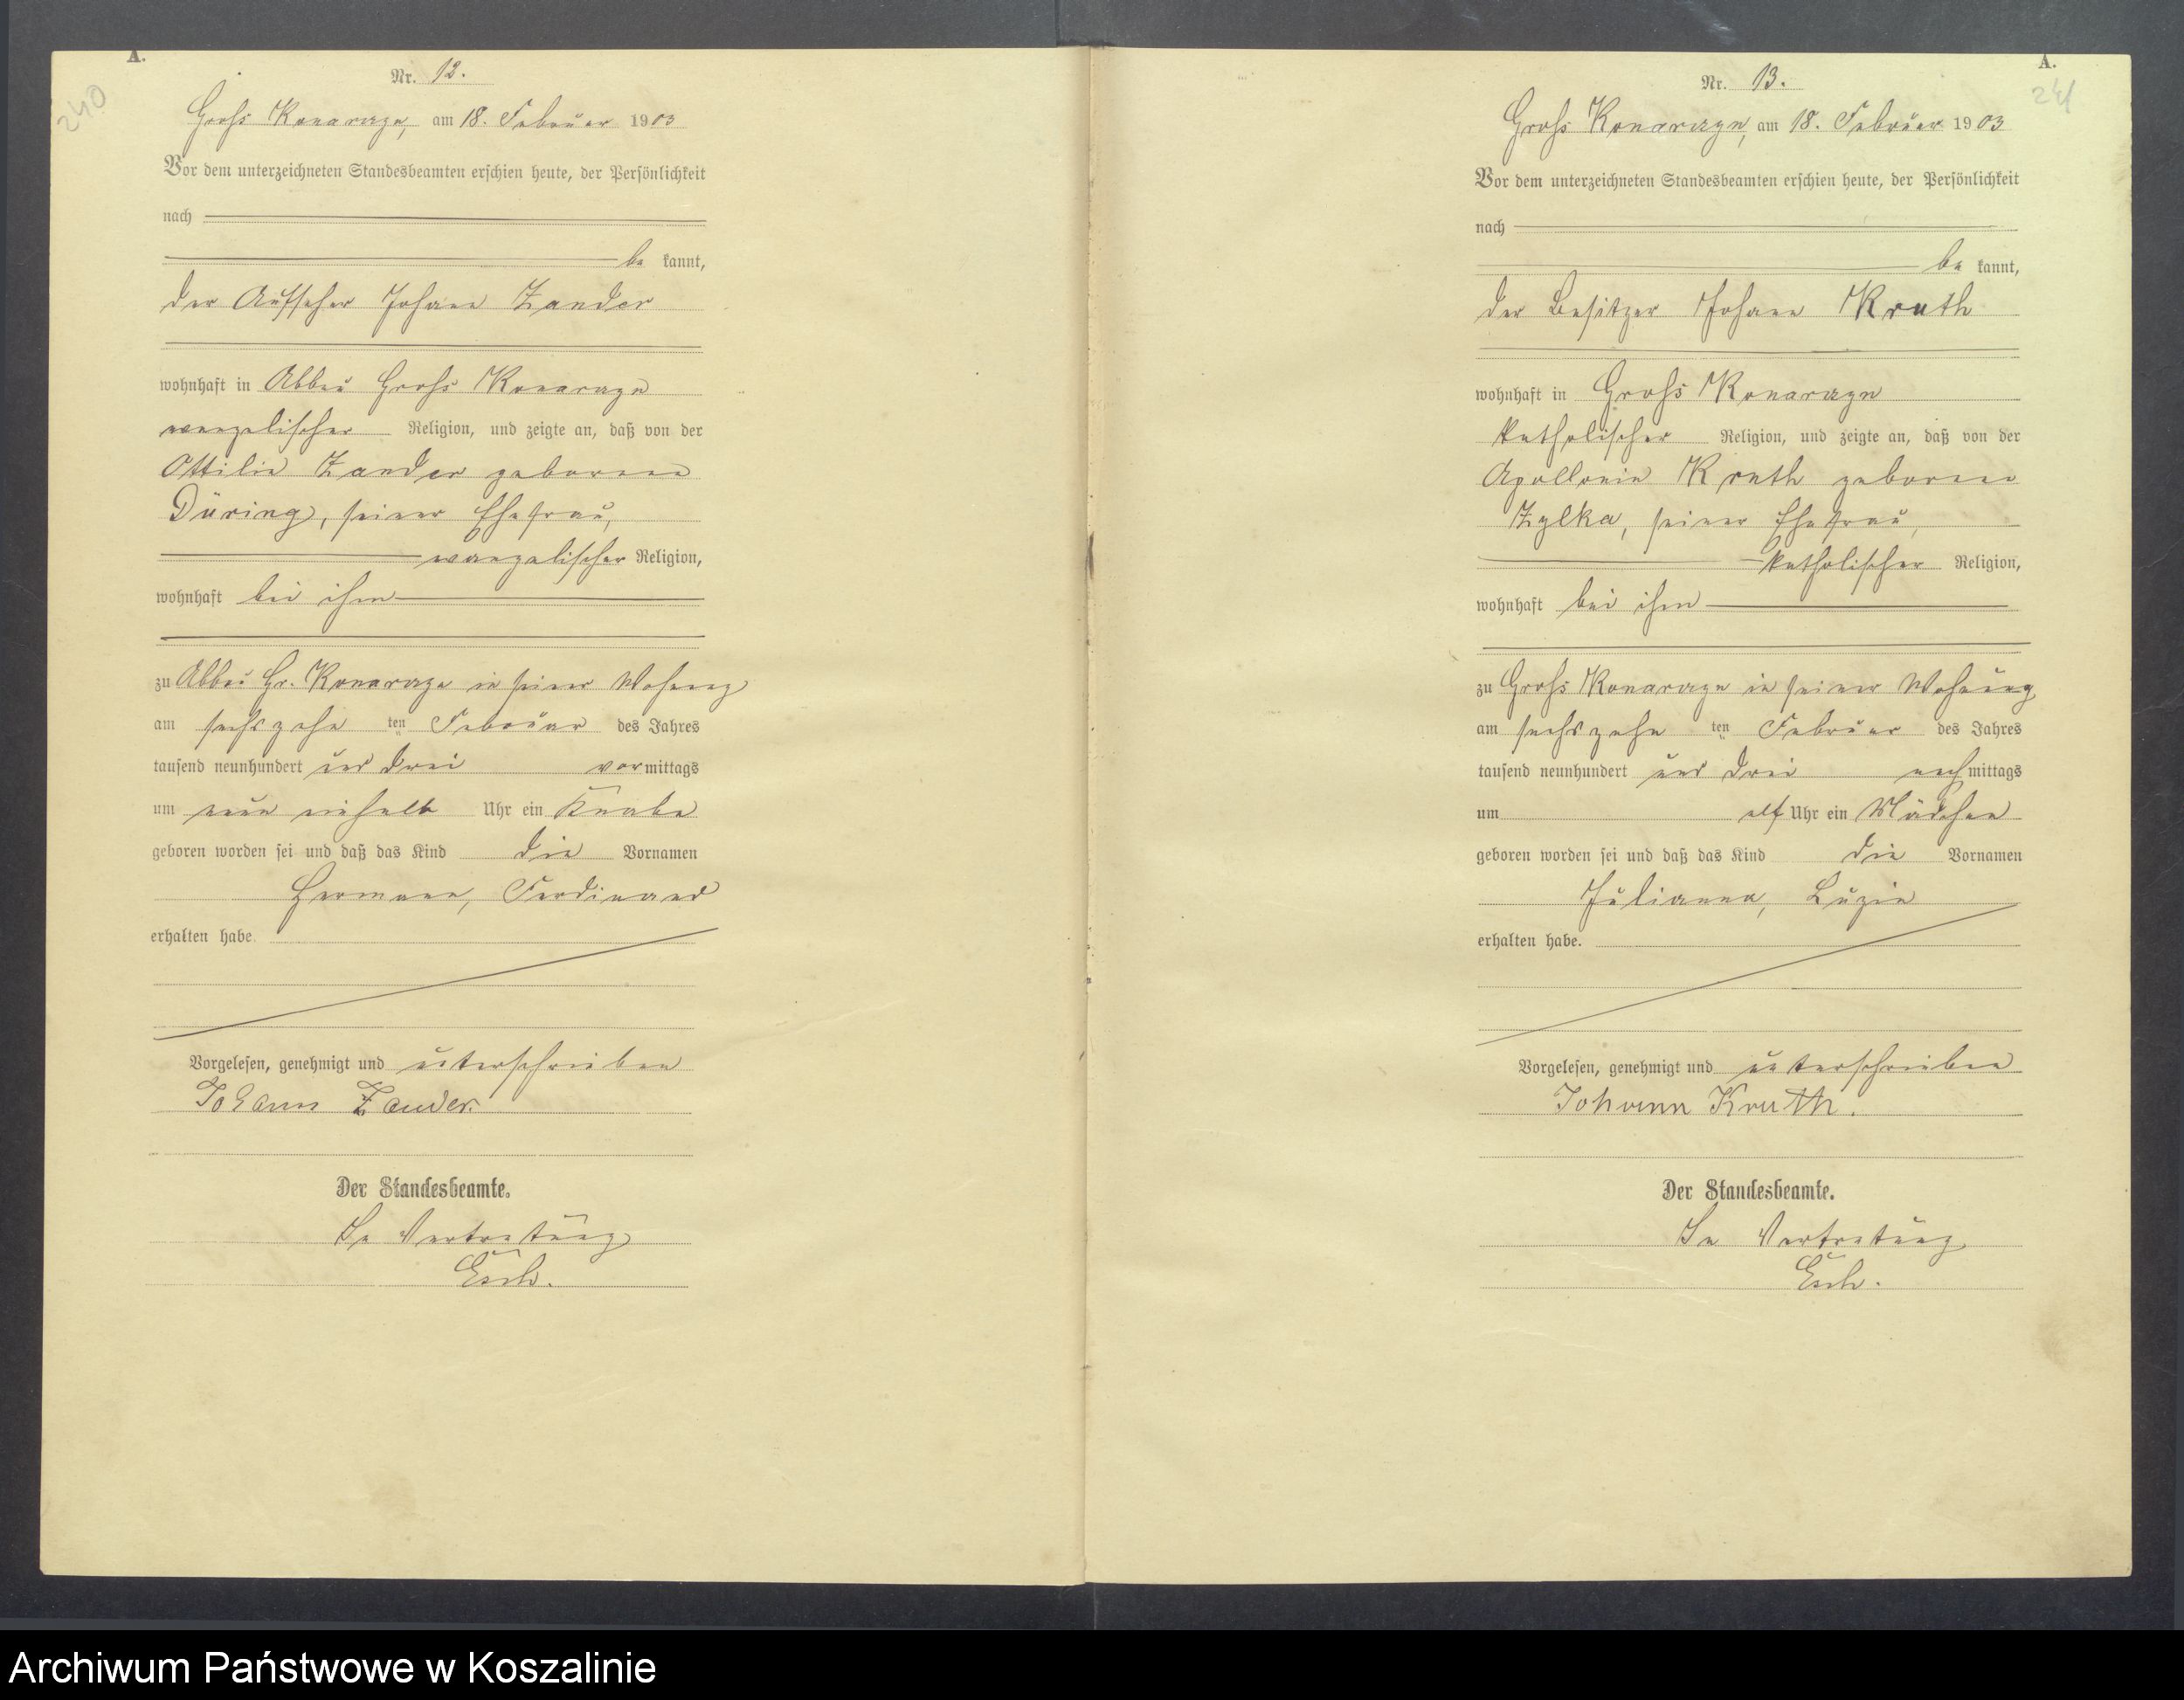 A.
240
Nr. 12.
Gross Konarzyn, am 18. Februar 1903
Vor dem unterzeichneten Standesbeamten erschien heute, der Persönlichkeit
nach
be kannt,
der Aufseher Johann Zander
wohnhaft in Abbau Gross Konarzyn
evangelischer Religion, und zeigte an, daß von der
Ottilie Zander geborenen
Düring, seiner Ehefrau,
evangelischer Religion,
wohnhaft bei ihm
zu Abbau Gr. Konarzyn in seiner Wohnung
am sechszehn ten Februar des Jahres
tausend neunhundert und drei vor mittags
um neun einhalb Uhr ein Knabe
geboren worden sei und daß das Kind die Vornamen
Hermann, Ferdinand
erhalten habe.
Vorgelesen, genehmigt und unterschrieben
Johann Zander.
Der Standesbeamte.
In Vertretung
Esch.
A.
241
Nr. 13.
Gross Konarzyn, am 18. Februar 1903
Vor dem unterzeichneten Standesbeamten erschien heute, der Persönlichkeit
nach
be kannt,
der Besitzer Johann Kruth
wohnhaft in Gross Konarzyn
katholischer Religion, und zeigte an, daß von der
Apollonia Kruth geborenen
Zylka, seiner Ehefrau,
katholischer Religion,
wohnhaft bei ihm
zu Gross Konarzyn in seiner Wohnung
am sechszehn ten Februar des Jahres
tausend neunhundert und drei nach mittags
um elf Uhr ein Mädchen
geboren worden sei und daß das Kind die Vornamen
Julianna, Luzia
erhalten habe.
Vorgelesen, genehmigt und unterschrieben
Johann Kruth.
Der Standesbeamte.
In Vertretung
Esch.
Archiwum Państwowe w Koszalinie